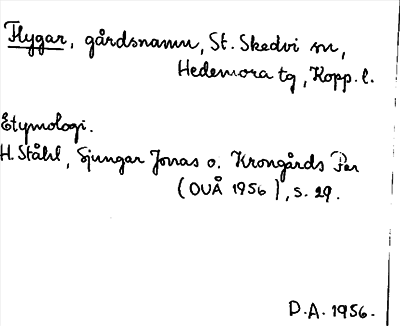 Flygar, gårdsnamn, St. Skedvi sn,
Hedemora tg, Kopp. l.
Etymologi.
H. Ståhl, Sjungar Jonas o. Krongårds Per
(OUÅ 1956), s. 29.
D.A. 1956.